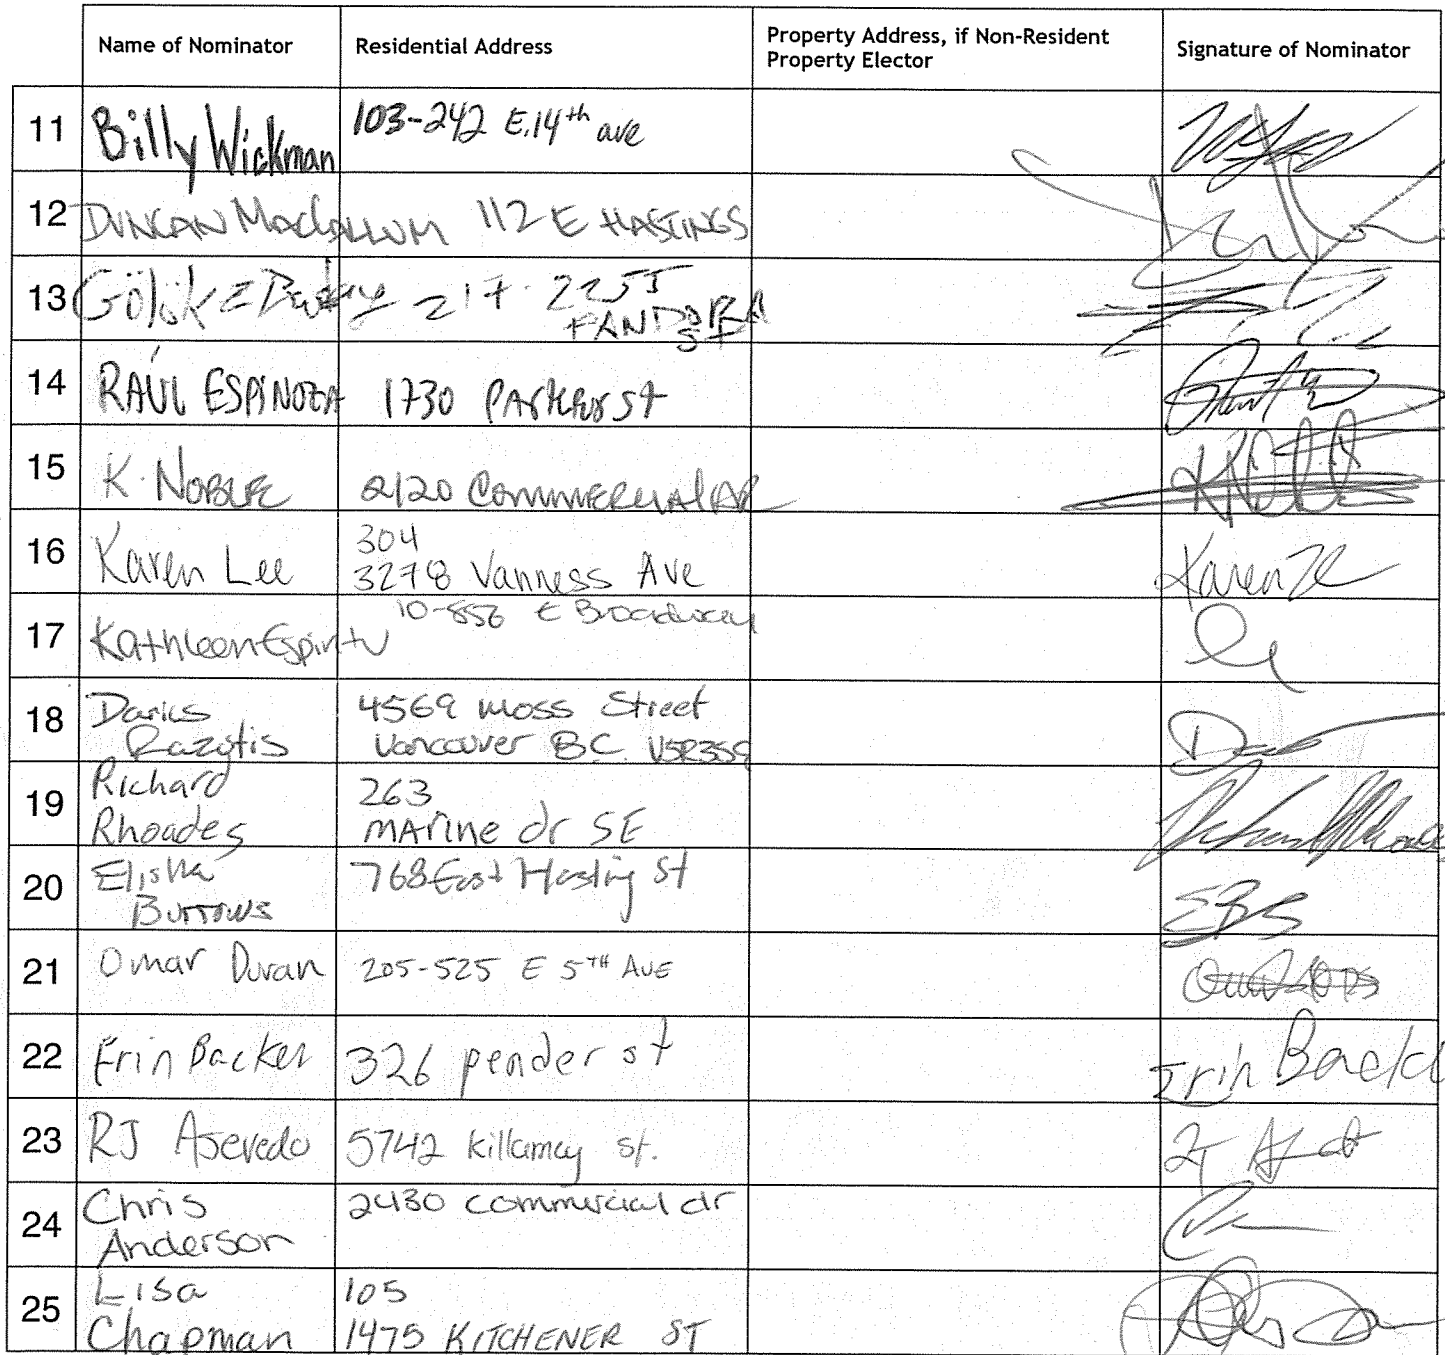 Name of Nominator
Residential Address
Property Address, if Non-Resident
Property Elector
Signature of Nominator
11 Billy Wickman 103-242 E.14th ave
12 DUNCAN MacCALLUM 112 E HASTINGS
13 217 - 2255
PANDORA
ST
14 RAÚL ESPINOZA 1730 Parker St
15 K. NOBLE 2120 Commercial DR
16 Karen Lee 304
3278 Vanness Ave
Karen
17 Kathleen Espiritu 10-856 E Broadway
18 Darius
Razgtis
4569 Moss Street
Vancouver BC V5R3S9
19 Richard
Rhoades
263
Marine dr SE
20 Elisha
Burrows
768 East Hasting St
EBS
21 Omar Duran 205-525 E 5TH AVE
22 Erin Backer 326 pender st
Erin
23 RJ Asevedo 5742 Killarney st.
24 Chris
Anderson
2430 commercial dr
25 Lisa
Chapman
105
1475 KITCHENER ST